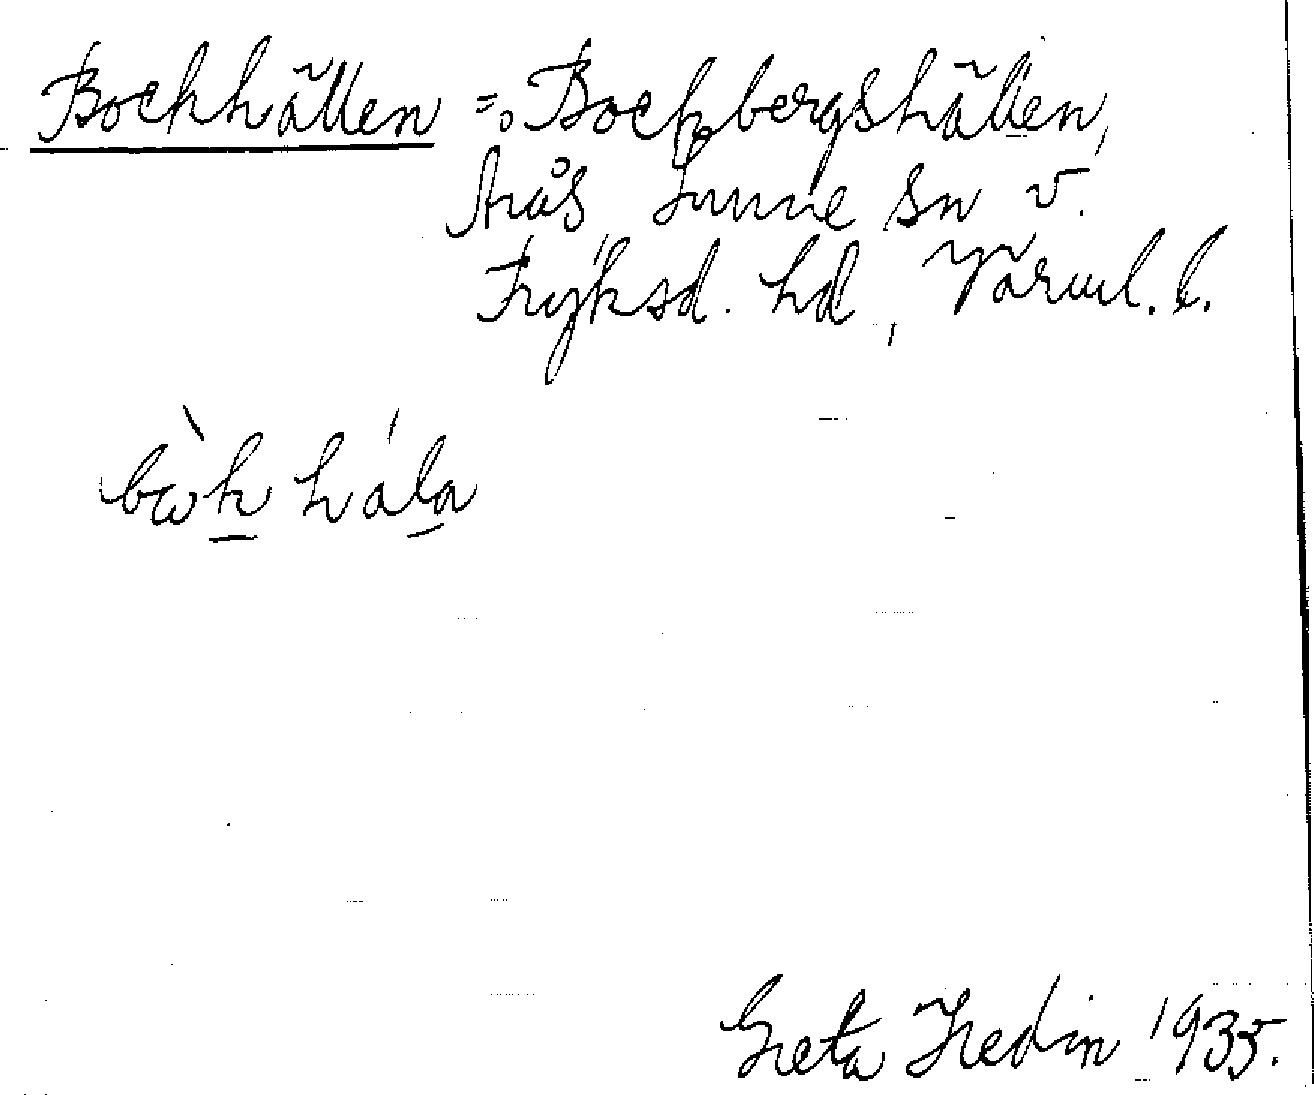 Bockhällen = Bockbergshällen,
Årås Sunne sn v.
Fryksd. hd, Värml. l.
bωk hála
Greta Hedin 1935.